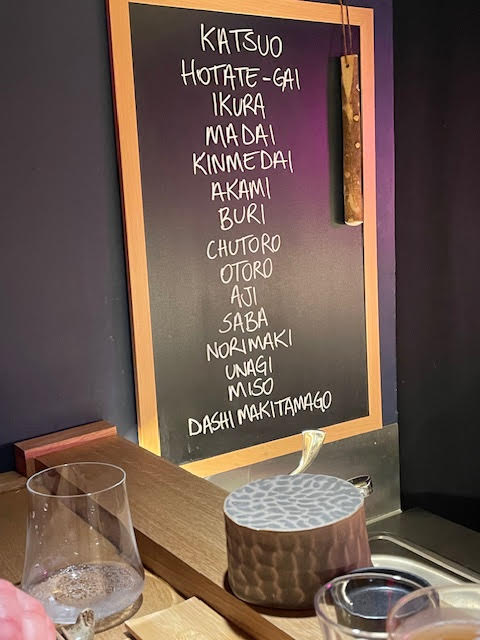 KATSUO
HOTATE-GAI
IKURA
MADAI
KINMEDAI
AKAMI
BURI
CHUTORO
OTORO
AJI
SABA
NORIMAKI
UNAGI
MISO
DASHI MAKITAMAGO